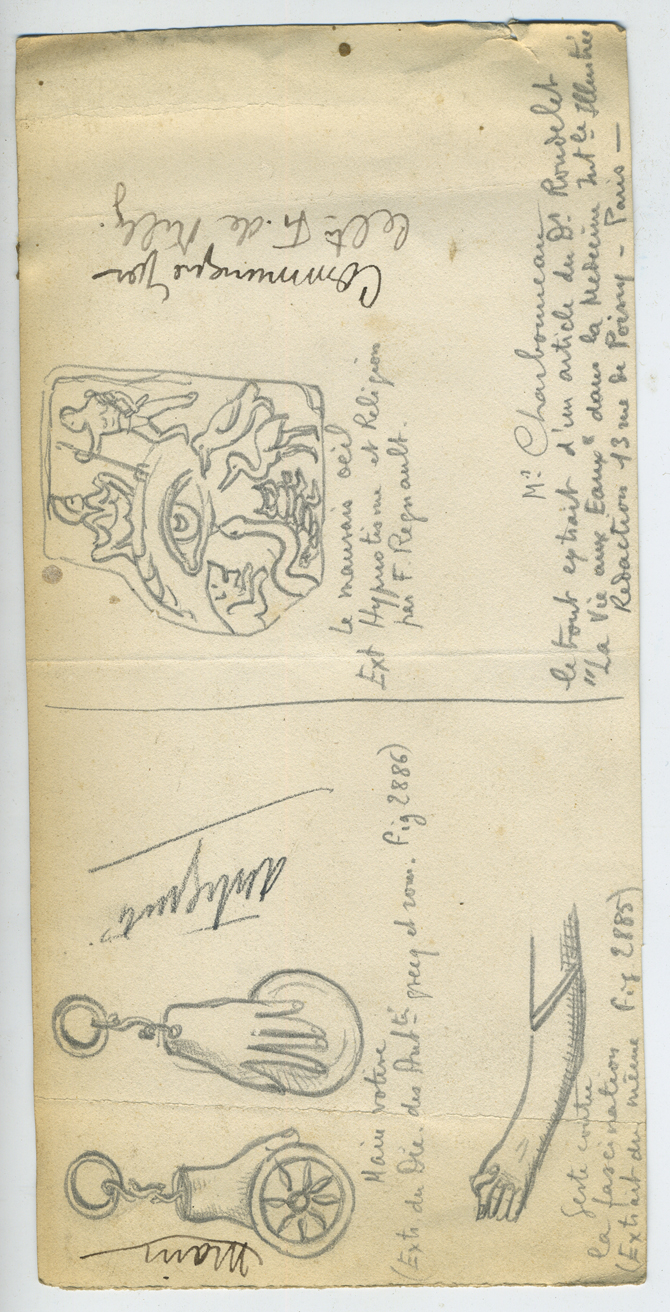 Communiqué par
le Ct. F. de Milly.
Le mauvais oeil
Ext Hypnotisme et Religion
par F. Regnault.
Mr Charbonneau
le tout extrait d'un article du Dr Rondelet
"La Vie aux Eaux" dans la Médecine Intle Illustrée
Redaction 13 rue de Poissy - Paris —
antiquité
Main
Main votive
(Extr du Dic. des Antté grecq et rom. Fig 2886)
Geste contre
la fascination
(Extrait du même Fig 2885)